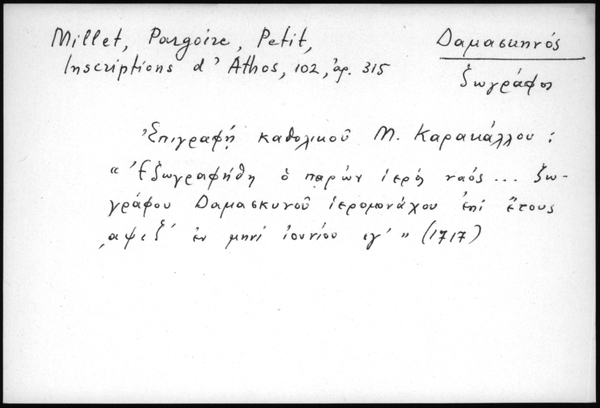 Millet, Pargoire, Petit,
Inscriptions d'Athos, 102, ἀρ. 315
Δαμασκηνός
ζωγράφος
Ἐπιγραφή καθολικοῦ Μ. Καρακάλλου:
"Ἐζωγραφήθη ὁ παρών ἱερός ναός... ζω-
γράφου Δαμασκυνοῦ ἱερομονάχου ἐπί ἔτους
ἐν μηνί ἰουνίου" (1717)